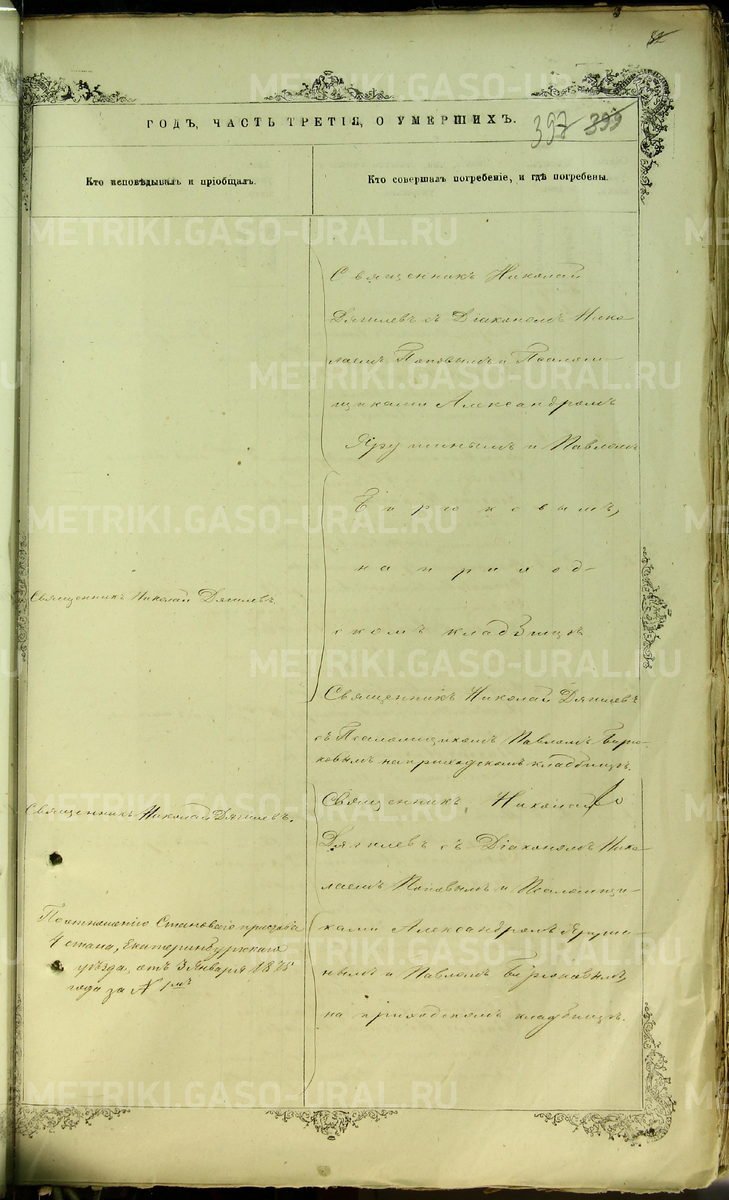 82
ГОДЪ, ЧАСТЬ ТРЕТІЯ, О УМЕРШИХЪ.
397 399
Кто исповѣдывалъ и пріобщалъ.
Кто совершалъ погребеніе, и гдѣ погребены.
Священникъ Николай
Дягилевъ съ Діакономъ Нико-
лаемъ Поповымъ и Псаломщи-
щиками Александромъ
Ярушинымъ и Павломъ
Бирюковымъ,
на приход-
скомъ кладбищѣ
Священникъ Николай Дягилевъ.
Священникъ Николай Дягилевъ
съ Псаломщикомъ Павломъ Бирю-
ковымъ на приходскомъ кладбищѣ.
Священникъ Николай Дягилевъ.
Священникъ Николай
Дягилевъ съ Діакономъ Нико-
лаемъ Поповымъ и Псаломщи-
ками Александромъ Яруши-
нымъ и Павломъ Бирюковымъ,
на приходскомъ кладбищѣ.
По отношенію Становаго пристава
4 стана, Екатеринбургскаго
уѣзда, отъ 3 Января 1875
года за № 1мъ
METRIKI.GASO-URAL.RU